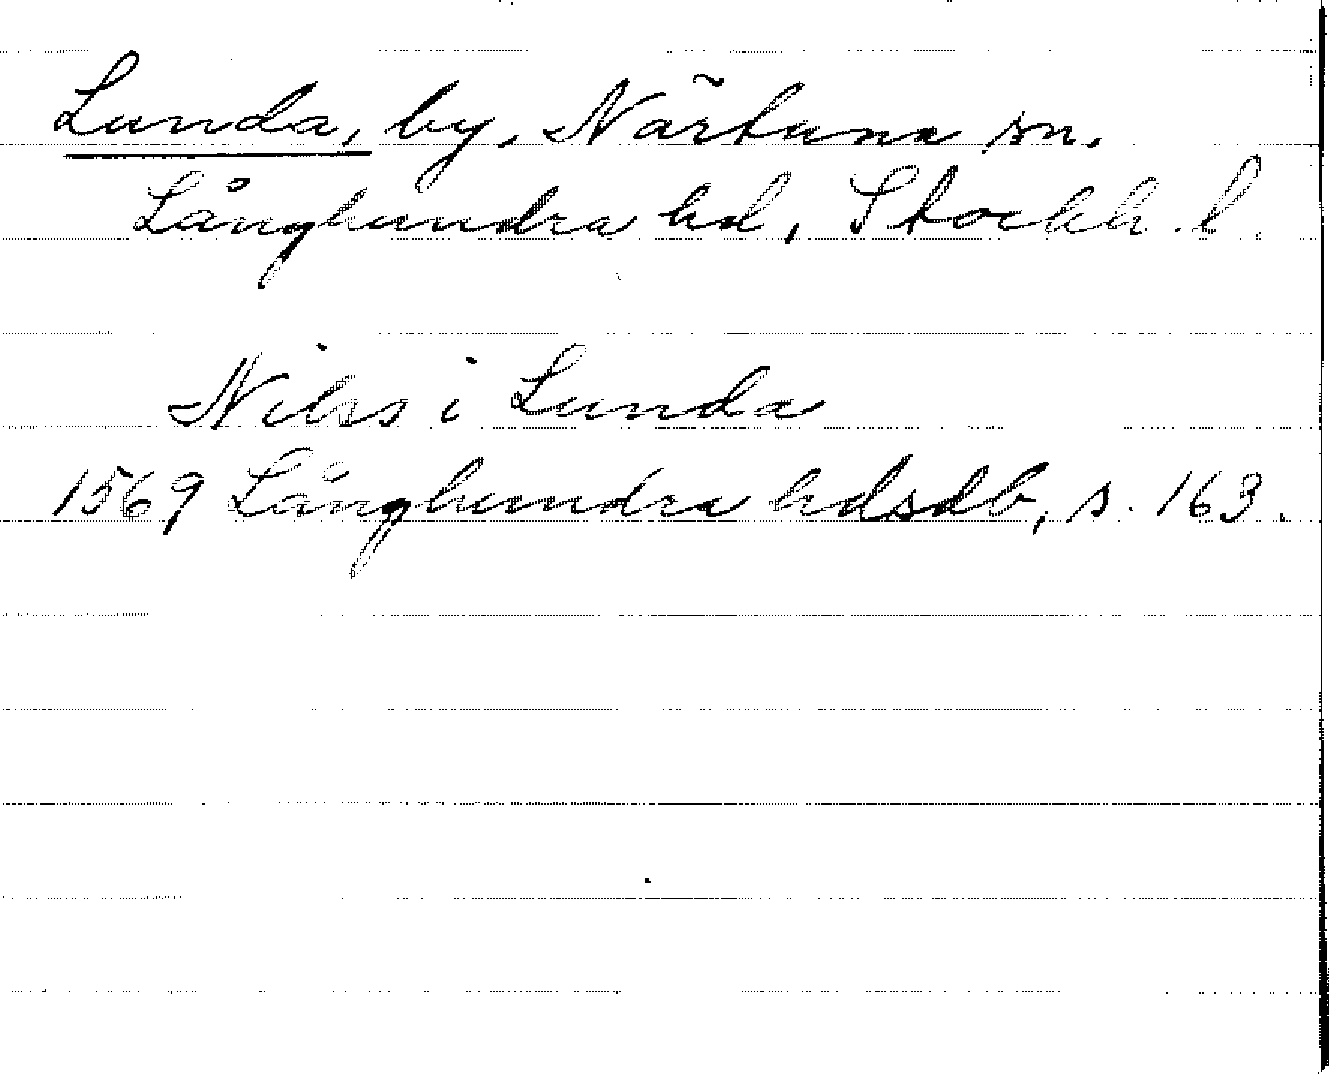 Lunda, by, Närtuna sn.
Långhundra hd, Stockh. l.
Nilss i Lunda
1569 Långhundra hdsdb, s. 163.